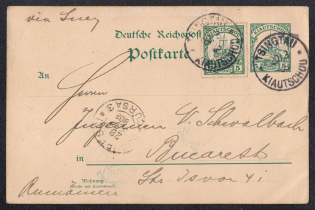 via Suez
Deutsche Reichspost
Postkarte
KIAUTSCHOU
5
TSINGTAU
KIAUTSCHOU
An
Herrn
Ingenieur W. Schwalbach
in Bucarest
Wohnung
Str. Isvor 41
Rumänien